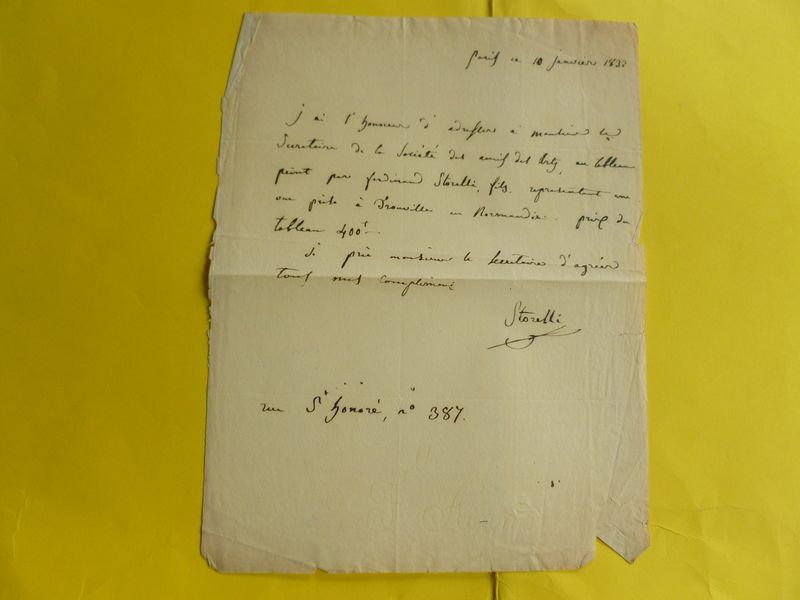 Paris ce 10 janvier 1838
j'ai l'honneur d'adresser à monsieur le
Secretaire de la Société des amis des Arts, un tableau
peint par ferdinand Storelli, fils. representant une
vue prise à Trouville en Normandie. prix du
tableau 400 f
Je prie monsieur le Secretaire d'agréer
tous mes compliments
Storelli
rue St honoré, n° 387.